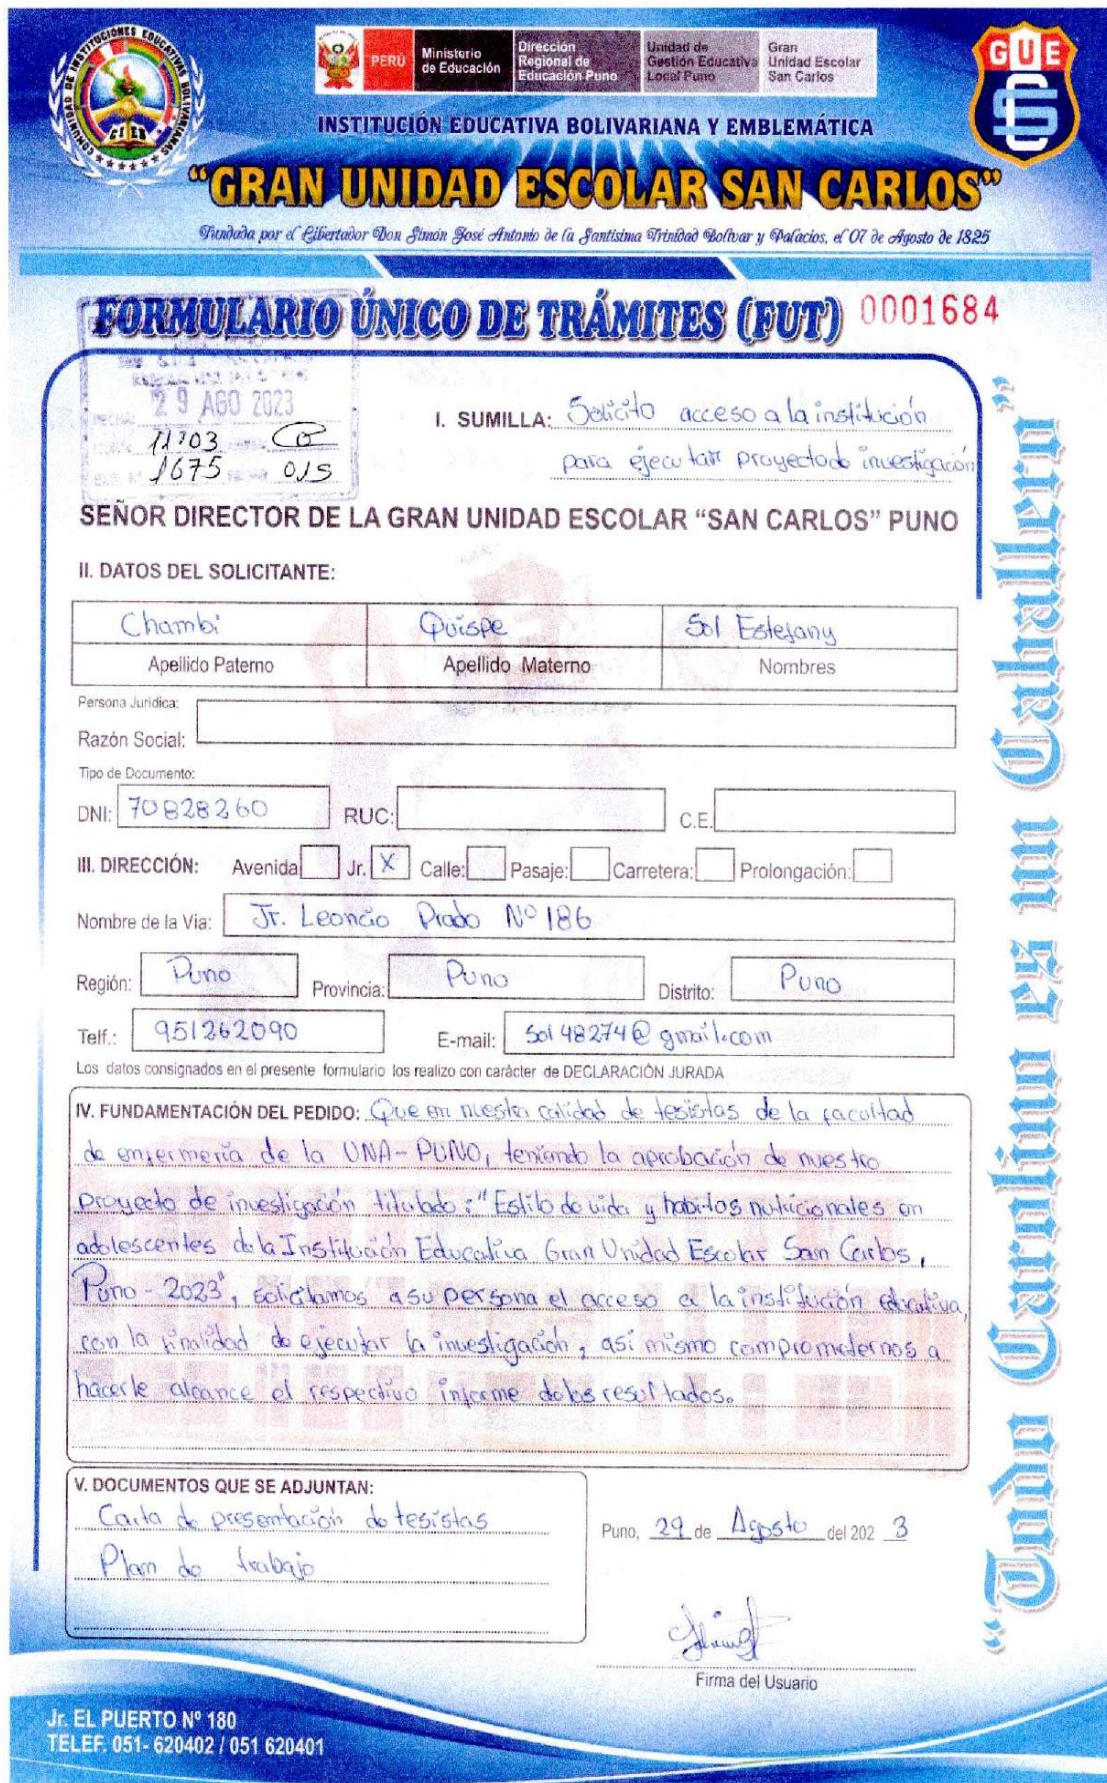 COMUNIDAD DE INSTITUCIONES EDUCATIVAS BOLIVARIANAS
CIEB
PERÚ
Ministerio de Educación
Dirección Regional de Educación Puno
Unidad de Gestión Educativa Local Puno
Gran Unidad Escolar San Carlos
GUE
SC
INSTITUCIÓN EDUCATIVA BOLIVARIANA Y EMBLEMÁTICA
“GRAN UNIDAD ESCOLAR SAN CARLOS”
Fundada por el Libertador Don Simón José Antonio de la Santísima Trinidad Bolívar y Palacios, el 07 de Agosto de 1825
FORMULARIO ÚNICO DE TRÁMITES (FUT) 0001684
29 AGO 2023
11703
1675 015
I. SUMILLA: Solicito acceso a la institución
para ejecutar proyecto de investigación
SEÑOR DIRECTOR DE LA GRAN UNIDAD ESCOLAR “SAN CARLOS” PUNO
II. DATOS DEL SOLICITANTE:
Chambi Quispe Sol Estefany
Apellido Paterno Apellido Materno Nombres
Persona Jurídica:
Razón Social:
Tipo de Documento:
DNI: 70828260 RUC: C.E.
III. DIRECCIÓN: Avenida Jr. X Calle: Pasaje: Carretera: Prolongación:
Nombre de la Via: Jr. Leoncio Prado Nº 186
Región: Puno Provincia: Puno Distrito: Puno
Telf.: 951262090 E-mail: sol48274@gmail.com
Los datos consignados en el presente formulario los realizo con carácter de DECLARACIÓN JURADA
IV. FUNDAMENTACIÓN DEL PEDIDO: Que en nuestra calidad de tesistas de la facultad
de enfermería de la UNA-PUNO, teniendo la aprobación de nuestro
proyecto de investigación titulado: "Estilo de vida y habitos nutricionales en
adolescentes de la Institución Educativa Gran Unidad Escolar San Carlos,
Puno - 2023", solicitamos a su persona el acceso a la institución educativa,
con la finalidad de ejecutar la investigación, así mismo comprometernos a
hacerle alcance el respectivo informe de los resultados.
V. DOCUMENTOS QUE SE ADJUNTAN:
Carta de presentación de tesistas
Plan de trabajo
Puno, 29 de Agosto del 2023
Firma del Usuario
Jr. EL PUERTO Nº 180
TELEF. 051- 620402 / 051 620401
“Todo Carolino es un Caballero”